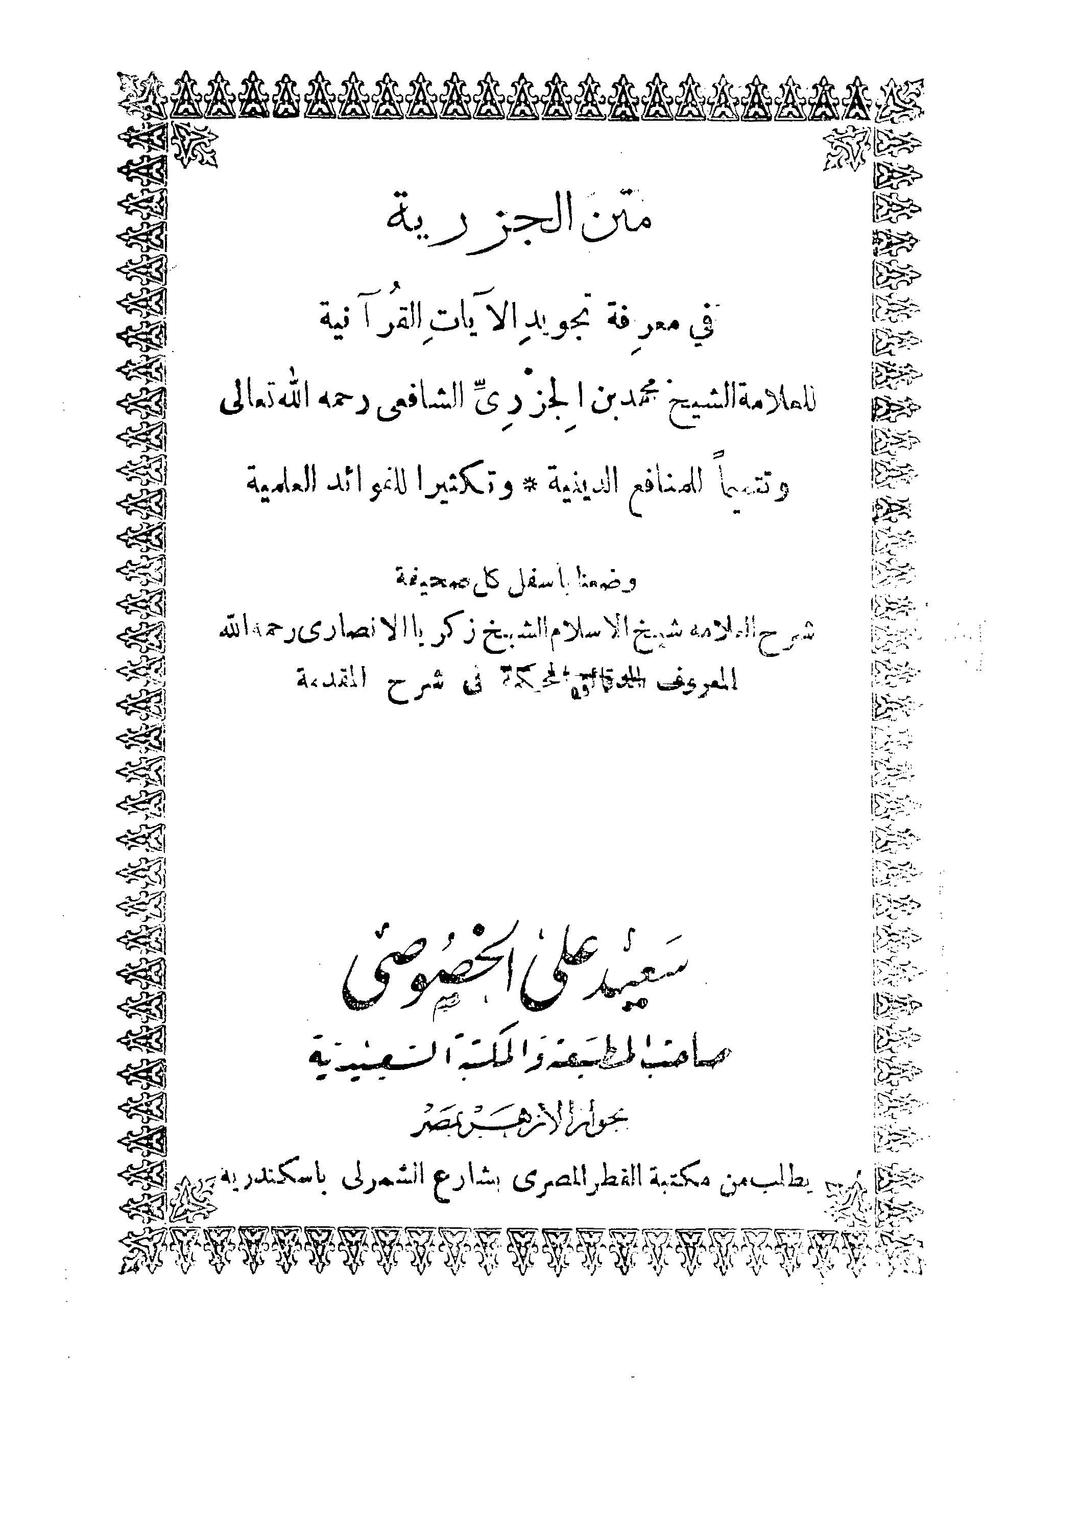 متن الجزرية
في معرِفة تجويدِ الآياتِ القُرآنية
للعلامة الشيخ محمد بن الجزْرِىِّ الشافعى رحمه الله تعالى
وتتميماً للمنافع الدينية * وتكثيرا للفوائد العلمية
وضعنا بأسفل كل صحيفة
شرح العلامه شيخ الاسلام الشيخ زكريا الانصارى رحمه الله
المعروف بالدقائق المحكمة فى شرح المقدمة
سعيد على الخصوصى
صاحب المطبعة والمكتبة السعيدية
بجوار الأزهر بمصر
يطلب من مكتبة القطر المصرى بشارع الشمرلى باسكندرية